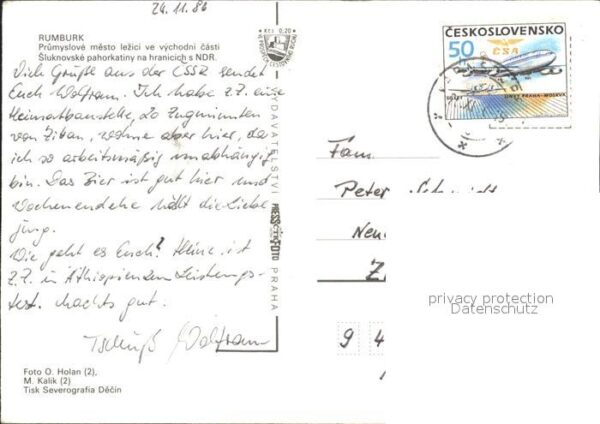 24.11.86
RUMBURK
Průmyslové město ležící ve východní části
Šluknovské pahorkatiny na hranicích s NDR.
Viele Grüße aus der CSSR sendet
Euch Wolfram. Ich habe z.Z. eine
Heimatbaustelle, 20 Zugminuten
von Zittau, wohne aber hier, da
ich so arbeitsmäßig unabhängig
bin. Das Bier ist gut hier und
Wochenendehe hält die Liebe
jung.
Wie geht es Euch? Heine ist
z.Z. in Äthiopien zum Leistungs-
test. Machts gut.
Tschüß Wolfram
Foto O. Holan (2),
M. Kalík (2)
Tisk Severografia Děčín
Kčs 0,20
VYDAVATELSTVÍ PRESSFOTO PRAHA
ČESKOSLOVENSKO
50
ČSA
LINKY PRAHA-MOSKVA
Fam.
Peter
Neu
Z
9 4
privacy protection
Datenschutz